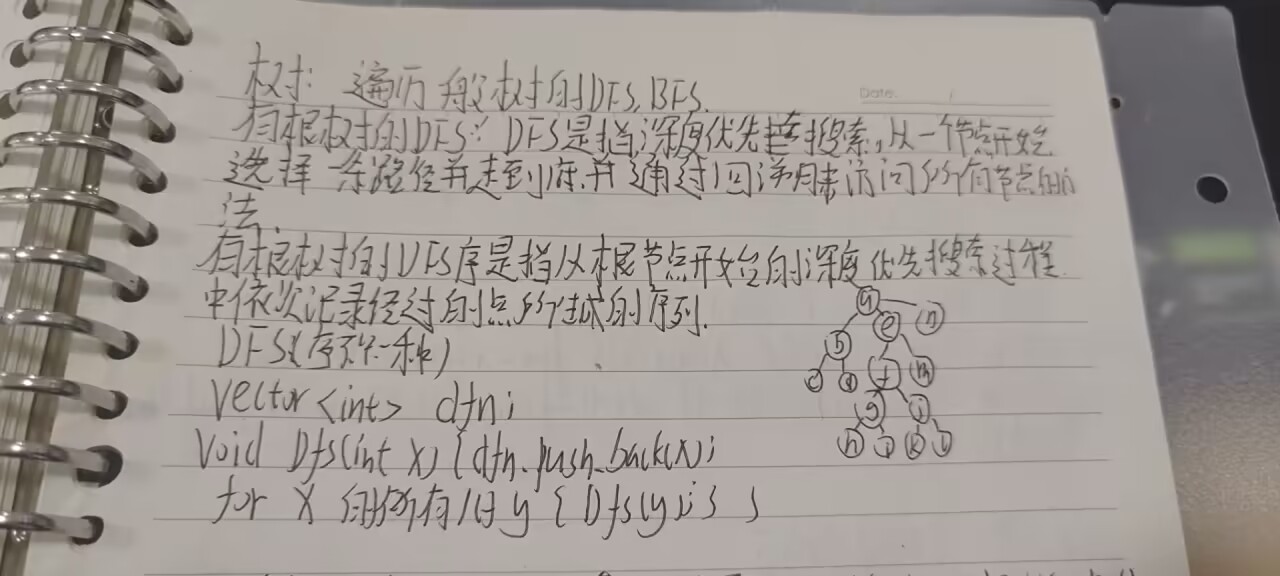 树: 遍历一般树的DFS, BFS.
Date. /
有根树的DFS: DFS是指深度优先搜索, 从一个节点开始
选择一条路径并走到底.并通过回溯来访问所有节点的方
法.
有根树的DFS序是指从根节点开始的深度优先搜索过程
中依次记录经过的点所生成的序列.
a
b e n
c d f m
g j
h i k l
DFS(序第一种)
vector<int> dfn;
Void Dfs(int x) {dfn.push_back(x);
for x 的所有儿子 y { Dfs(y); } }